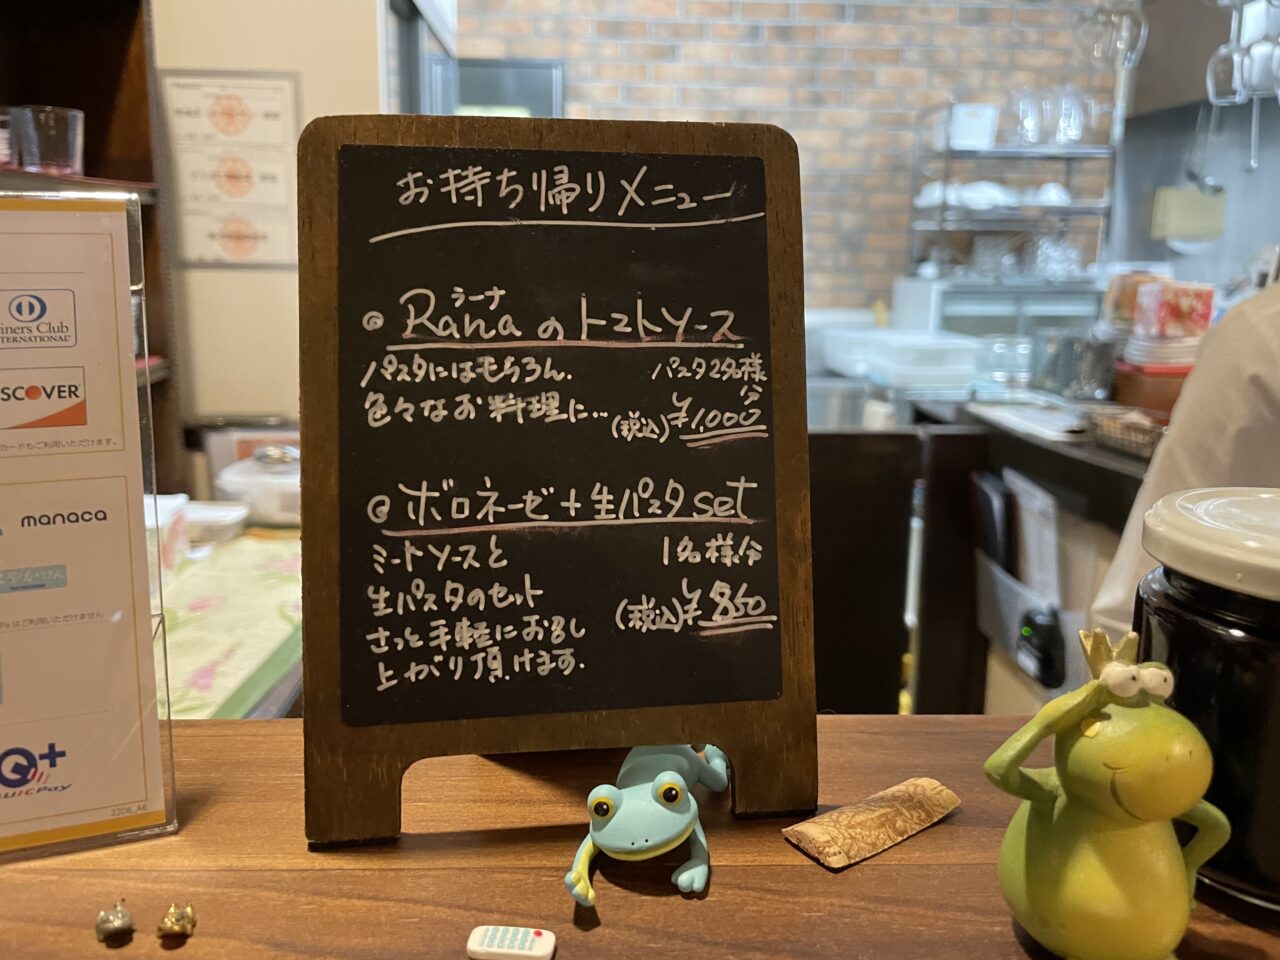 お持ち帰りメニュー
ラーナ
◎ Ranaのトマトソース
パスタにはもちろん、
色々なお料理に…
パスタ2名様
分
(税込) ¥1,000
◎ ボロネーゼ+生パスタset
ミートソースと
生パスタのセット
さっと手軽にお召し
上がり頂けます.
1名様分
(税込) ¥850
iners Club
TERNATIONAL
SCOVER
カードもご利用いただけます。
manaca
はやかけん
はご利用いただけません
Q+
UICPay
2206_A6